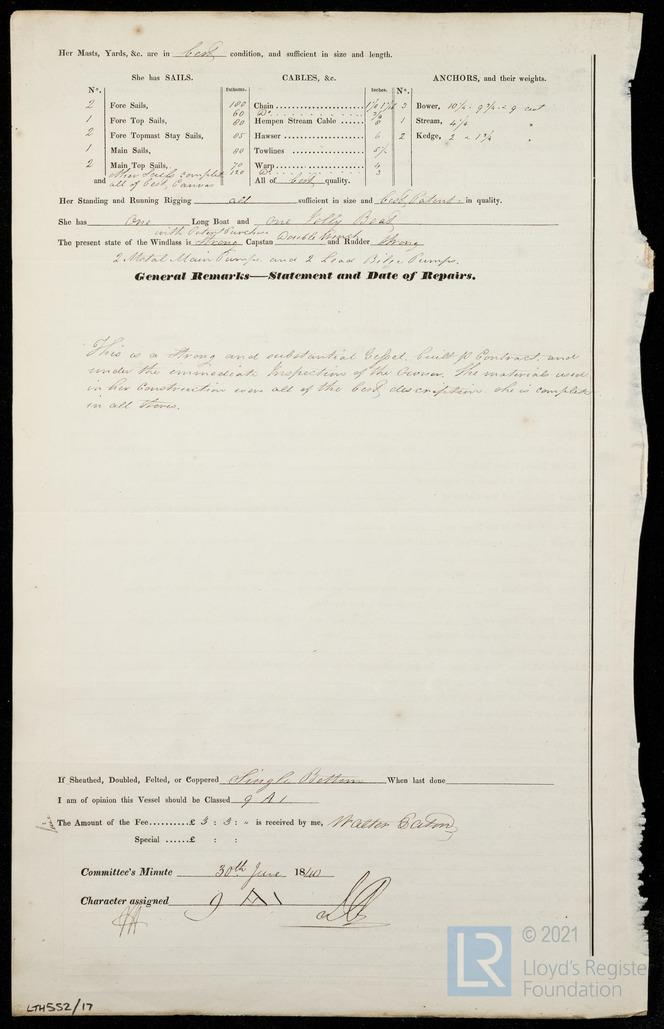 Her Masts, Yards, &c. are in best condition, and sufficient in size and length.
She has SAILS. CABLES, &c. ANCHORS, and their weights.
N°. Fathoms. Inches. N°.
2 Fore Sails, 100 Chain 3 Bower, 10½ - 9¾ - 9 cwt
60 Do.
1 Fore Top Sails, 80 Hempen Stream Cable 8 1 Stream, 4½ "
2 Fore Topmast Stay Sails, 85 Hawser 6 2 Kedge, 2 - 1¼ "
1 Main Sails, 80 Towlines 5½
2 Main Top Sails, 70 Warp 4
and other Sails complete 120 Do. 3
all of best Canvas All of best quality.
Her Standing and Running Rigging all sufficient in size and best Patent in quality.
She has One Long Boat and One Jolly Boat
with Patent Purchase
The present state of the Windlass is Strong Capstan Double Winch and Rudder Strong
2 Metal Main Pumps and 2 Lead Bilge Pumps.
General Remarks—Statement and Date of Repairs.
This is a strong and substantial Vessel built p Contract and
under the immediate Inspection of the Owner. The materials used
in her Construction were all of the best description. She is complete
in all Stores.
If Sheathed, Doubled, Felted, or Coppered Single Bottom When last done
I am of opinion this Vessel should be Classed 9 A 1
The Amount of the Fee..........£ 3 : 3 : " is received by me, Walter Eaton
Special ......£ : :
Committee's Minute 30th June 1840
Character assigned 9 A 1
LTH552/17
LR
© 2021
Lloyd's Register
Foundation